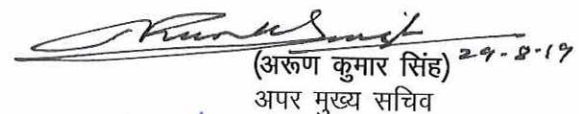 (अरूण कुमार सिंह) 29-8-19
अपर मुख्य सचिव